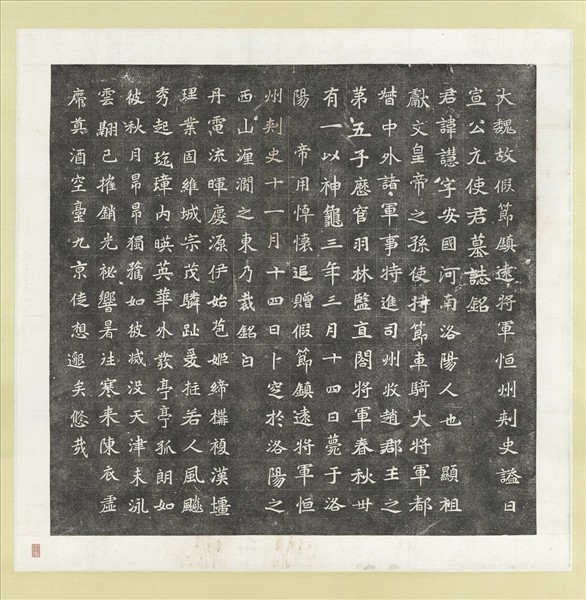 大魏故假節鎮遠將軍恒州刾史謚曰
宣公元使君墓誌銘
君諱譿字安國河南洛陽人也 顯祖
獻文皇帝之孫使持節車騎大將軍都
督中外諸軍事特進司州牧趙郡王之
第五子應官羽林監直閤將軍春秋卅
有一以神龜三年三月十四日薨于洛
陽 帝用悼懷追贈假節鎮遠將軍恒
州刾史十一月十四日卜窆於洛陽之
西山瀍澗之東乃裁銘曰
丹電流暉慶源伊始苞姬締構複漢壃
理業固維城宗茂驎趾爰挺若人風飈
秀起珌璋內暎英華外發亭亭孤朗如
彼秋月昂昂獨鶩如彼滅没天津未泳
雲翮已摧銷光祕響暑往寒来陳衣虛
席奠酒空臺九京徒想邈矣悠哉